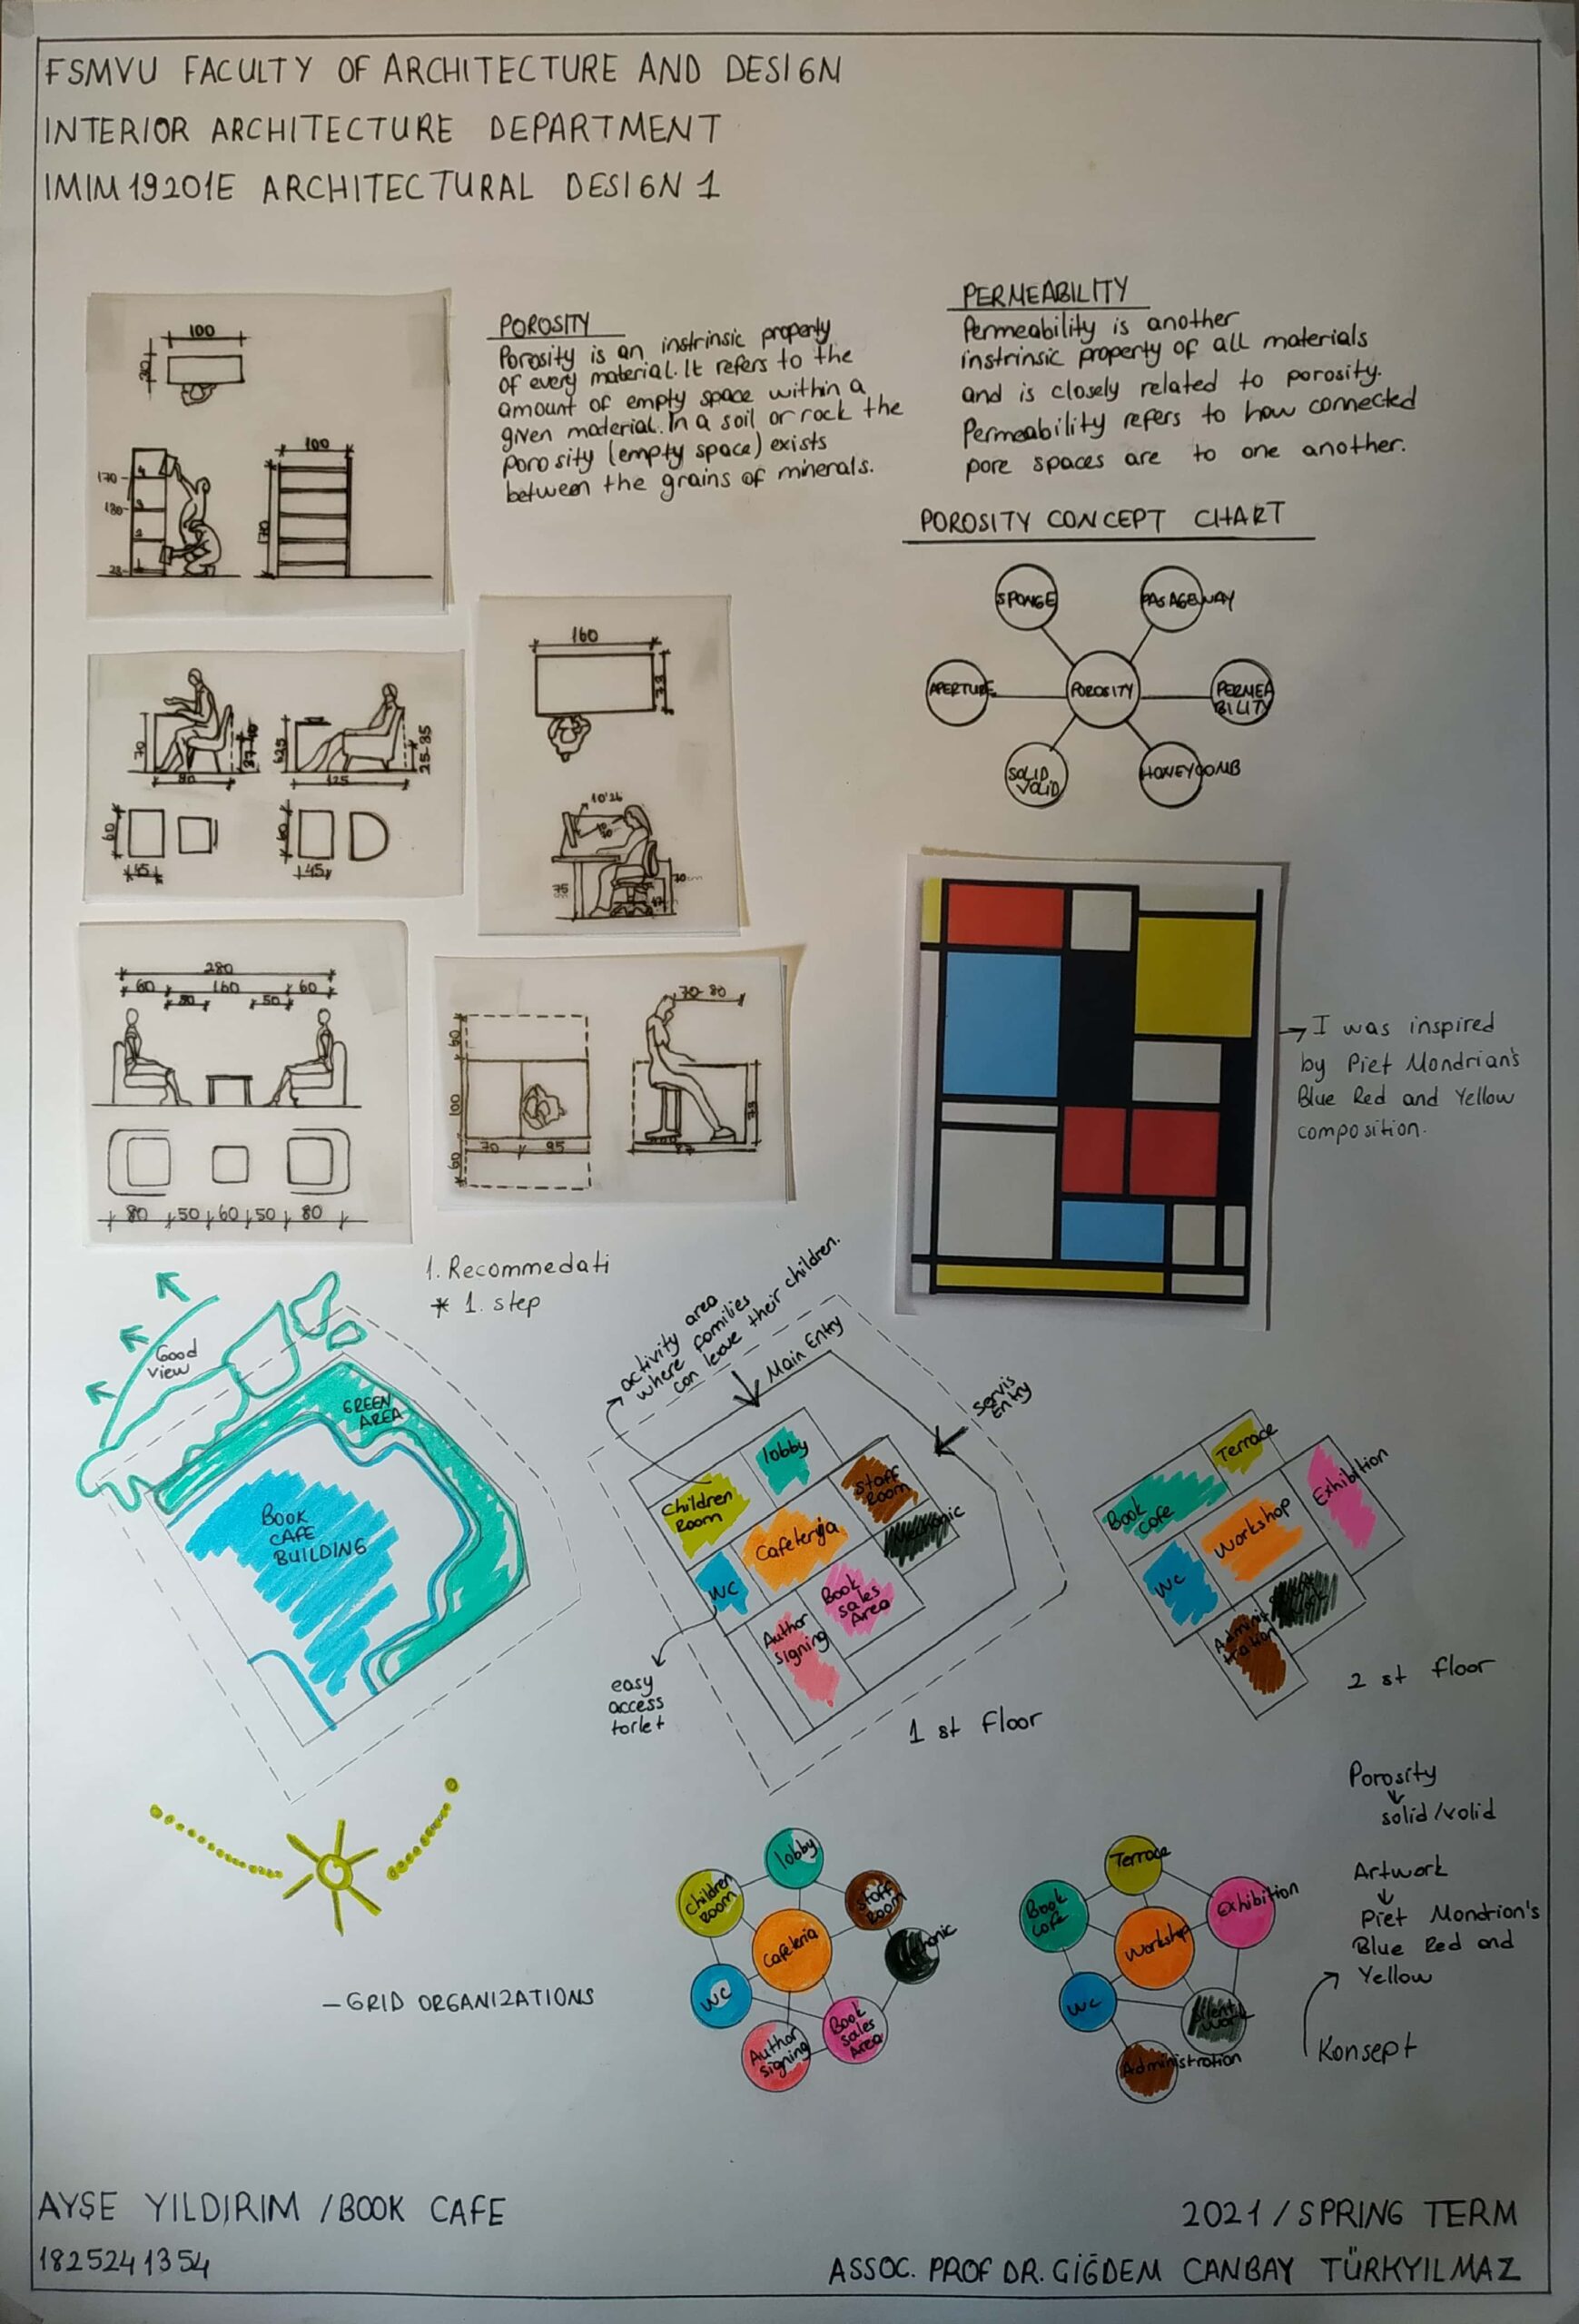 FSMVU FACULTY OF ARCHITECTURE AND DESIGN
INTERIOR ARCHITECTURE DEPARTMENT
IMIM19201E ARCHITECTURAL DESIGN 1
100
30
100
170
180
170
POROSITY
Porosity is an instrinsic property
of every material. It refers to the
amount of empty space within a
given material. In a soil or rock the
porosity (empty space) exists
between the grains of minerals.
PERMEABILITY
Permeability is another
instrinsic property of all materials
and is closely related to porosity.
Permeability refers to how connected
pore spaces are to one another.
POROSITY CONCEPT CHART
SPONGE
PASAGEWAY
APERTURE
POROSITY
PERMEA
BILITY
SOLID
VOLID
HONEYCOMB
70
80
125
25-35
60
45
60
45
160
75
280
60
160
60
50
80
50
60
50
80
70-80
60
100
60
70
95
I was inspired
by Piet Mondrian's
Blue Red and Yellow
composition.
1. Recommedati
* 1. step
Good
view
GREEN
AREA
BOOK
CAFE
BUILDING
activity area
where families
can leave their children.
Main Entry
Servis
Entry
lobby
Children
Room
Staff
Room
Cafeteria
WC
Book
sales
Area
Author
signing
easy
access
torlet
1 st floor
Terrace
Book
Cafe
Exhibition
Workshop
WC
Adminis
tration
2 st floor
Porosity
solid/volid
Artwork
Piet Mondrian's
Blue Red and
Yellow
Konsept
lobby
Children
Room
Staff
Room
Cafeteria
WC
Author
signing
Book
sales
Area
Terrace
Book
Cafe
Exhibition
Workshop
WC
Silent
work
Administration
- GRID ORGANIZATIONS
AYŞE YILDIRIM / BOOK CAFE
1825241354
2021 / SPRING TERM
ASSOC. PROF DR. GİĞDEM CANBAY TÜRKYILMAZ